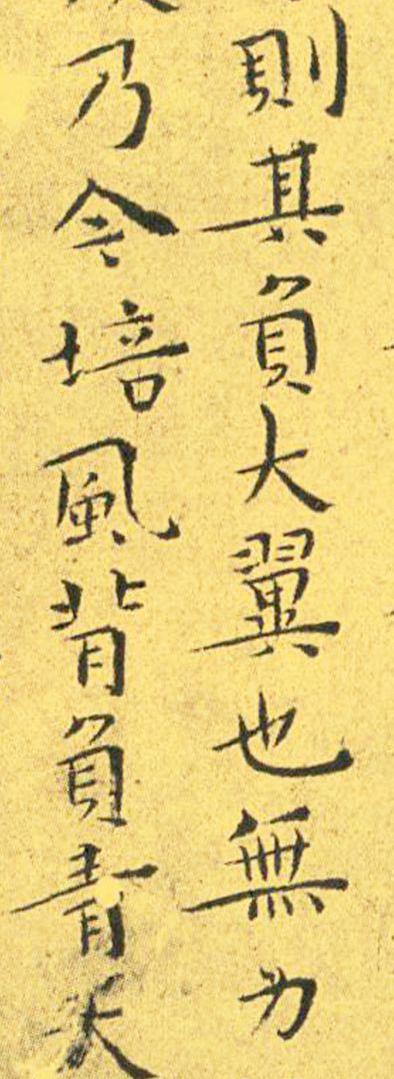 則其負大翼也無力
乃今培風背負青天